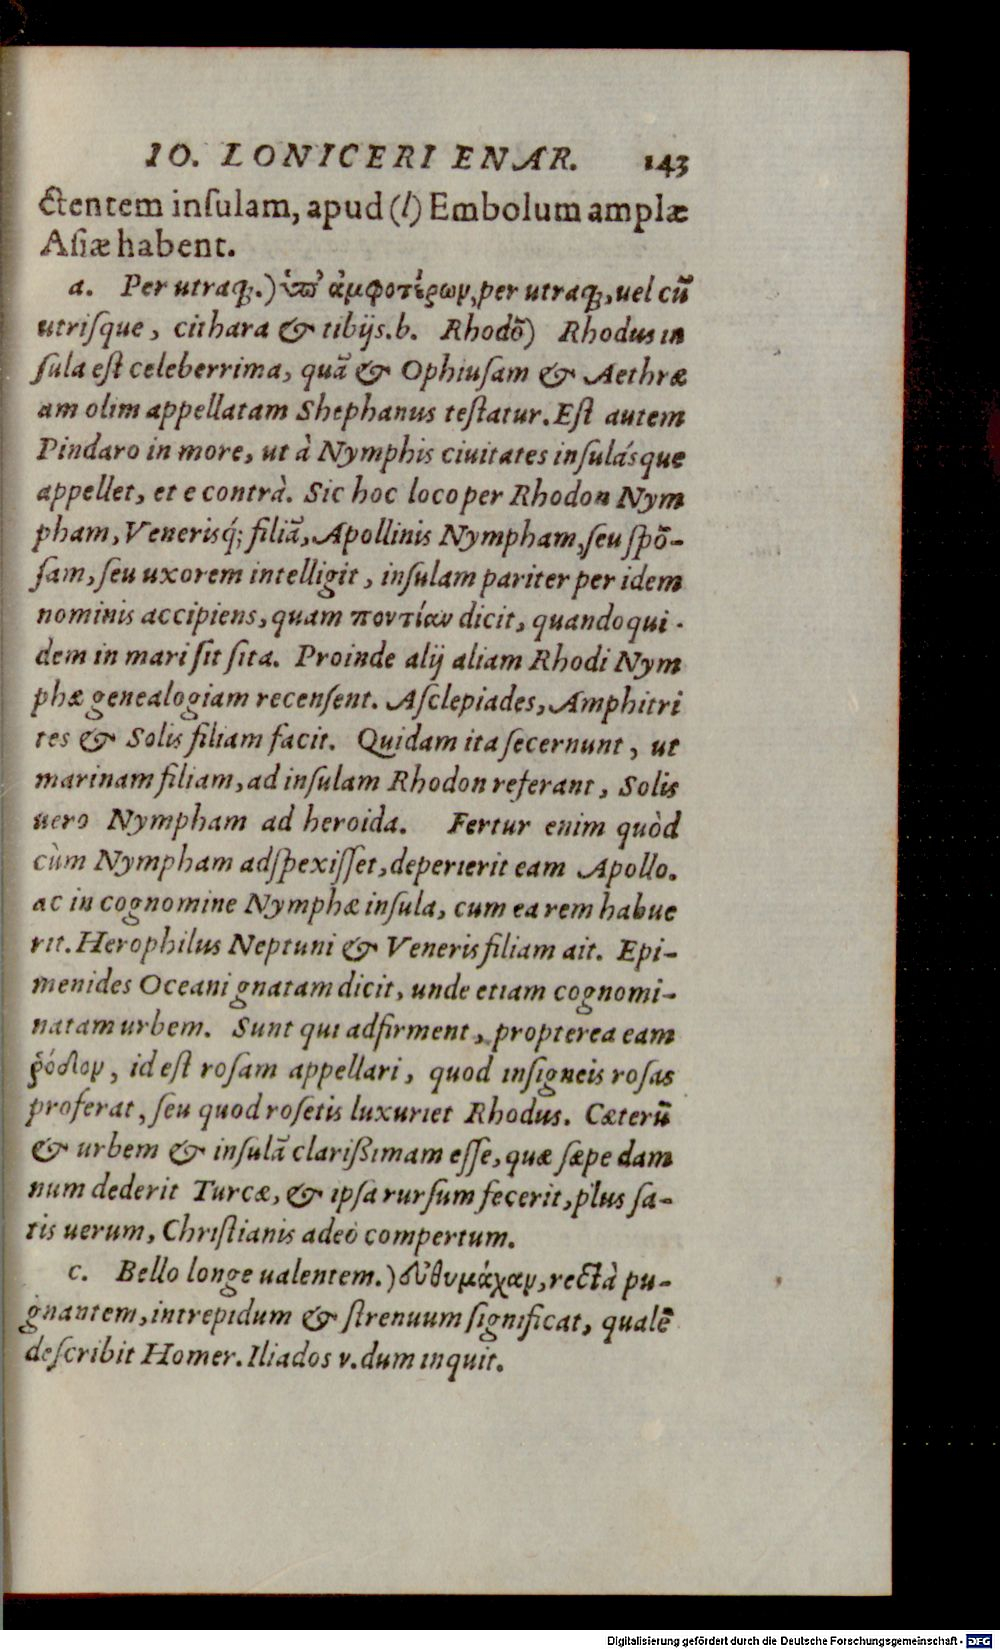 IO. LONICERI ENAR. 143
ctentem insulam, apud (l) Embolum amplæ
Asiæ habent.
a. Per utraq;.) ὑπ' ἀμφοτέρων, per utraq;, uel cũ
utrisque, cithara & tibijs. b. Rhodõ) Rhodus in
sula est celeberrima, quã & Ophiusam & Aethræ
am olim appellatam Shephanus testatur. Est autem
Pindaro in more, ut à Nymphis ciuitates insulásque
appellet, et e contrà. Sic hoc loco per Rhodon Nym
pham, Venerisq́; filiã, Apollinis Nympham, seu spõ-
sam, seu uxorem intelligit, insulam pariter per idem
nominis accipiens, quam ποντίαν dicit, quandoqui-
dem in mari sit sita. Proinde alij aliam Rhodi Nym
phæ genealogiam recensent. Asclepiades, Amphitri
tes & Solis filiam facit. Quidam ita secernunt, ut
marinam filiam, ad insulam Rhodon referant, Solis
uero Nympham ad heroida. Fertur enim quòd
cùm Nympham adspexisset, deperierit eam Apollo.
ac in cognomine Nymphæ insula, cum ea rem habue
rit. Herophilus Neptuni & Veneris filiam ait. Epi-
menides Oceani gnatam dicit, unde etiam cognomi-
natam urbem. Sunt qui adfirment, propterea eam
ῥόδον, id est rosam appellari, quod insigneis rosas
proferat, seu quod rosetis luxuriet Rhodus. Cæterũ
& urbem & insulã clarißimam esse, quæ sæpe dam
num dederit Turcæ, & ipsa rursum fecerit, plus sa-
tis uerum, Christianis adeò compertum.
c. Bello longe ualentem.) εὐθυμάχαν, rectà pu-
gnantem, intrepidum & strenuum significat, qualẽ
describit Homer. Iliados v. dum inquit.
Digitalisierung gefördert durch die Deutsche Forschungsgemeinschaft - DFG